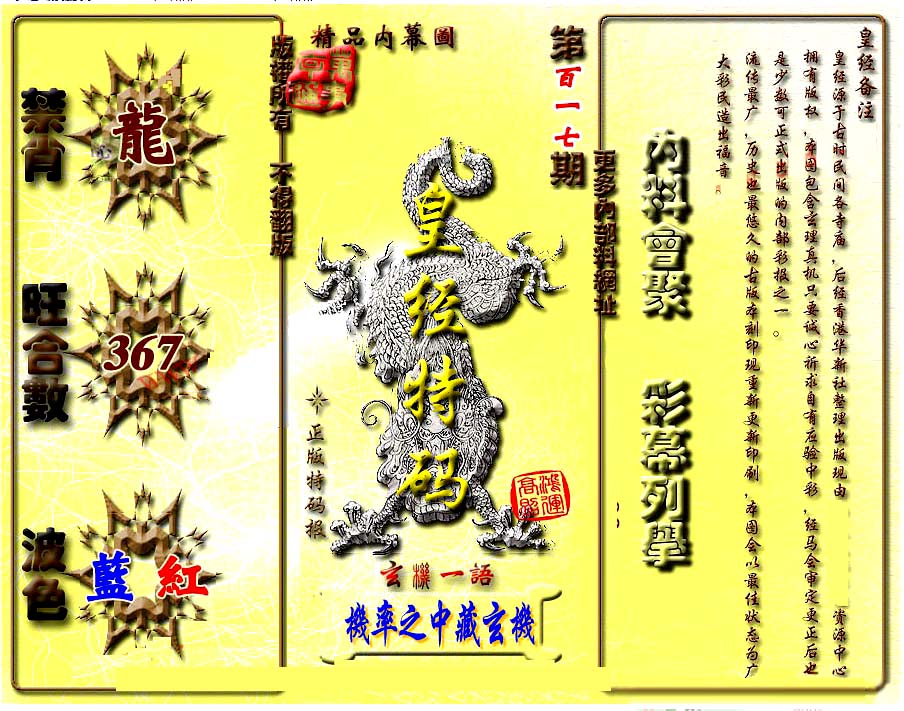 皇经备注
皇经源于古时民间各寺庙，后经香港华新社整理出版现由 资源中心
拥有版权，本图包含玄理真机只要诚心祈求自有应验中彩，经马会审定更正后也
是少数可正式出版的内部彩报之一。
流传最广，历史也最悠久的古版本刻印现重新更新印刷，本图会以最佳状态为广
大彩民造出福音
內料會聚
彩幕列舉
更多內部料網址
第百一七期
精品内幕圖
皇经特码
鴻運
高照
正版特码报
玄機一語
機率之中藏玄機
版權所有 不得翻版
禁肖
龍
旺合數
367
波色
藍 紅